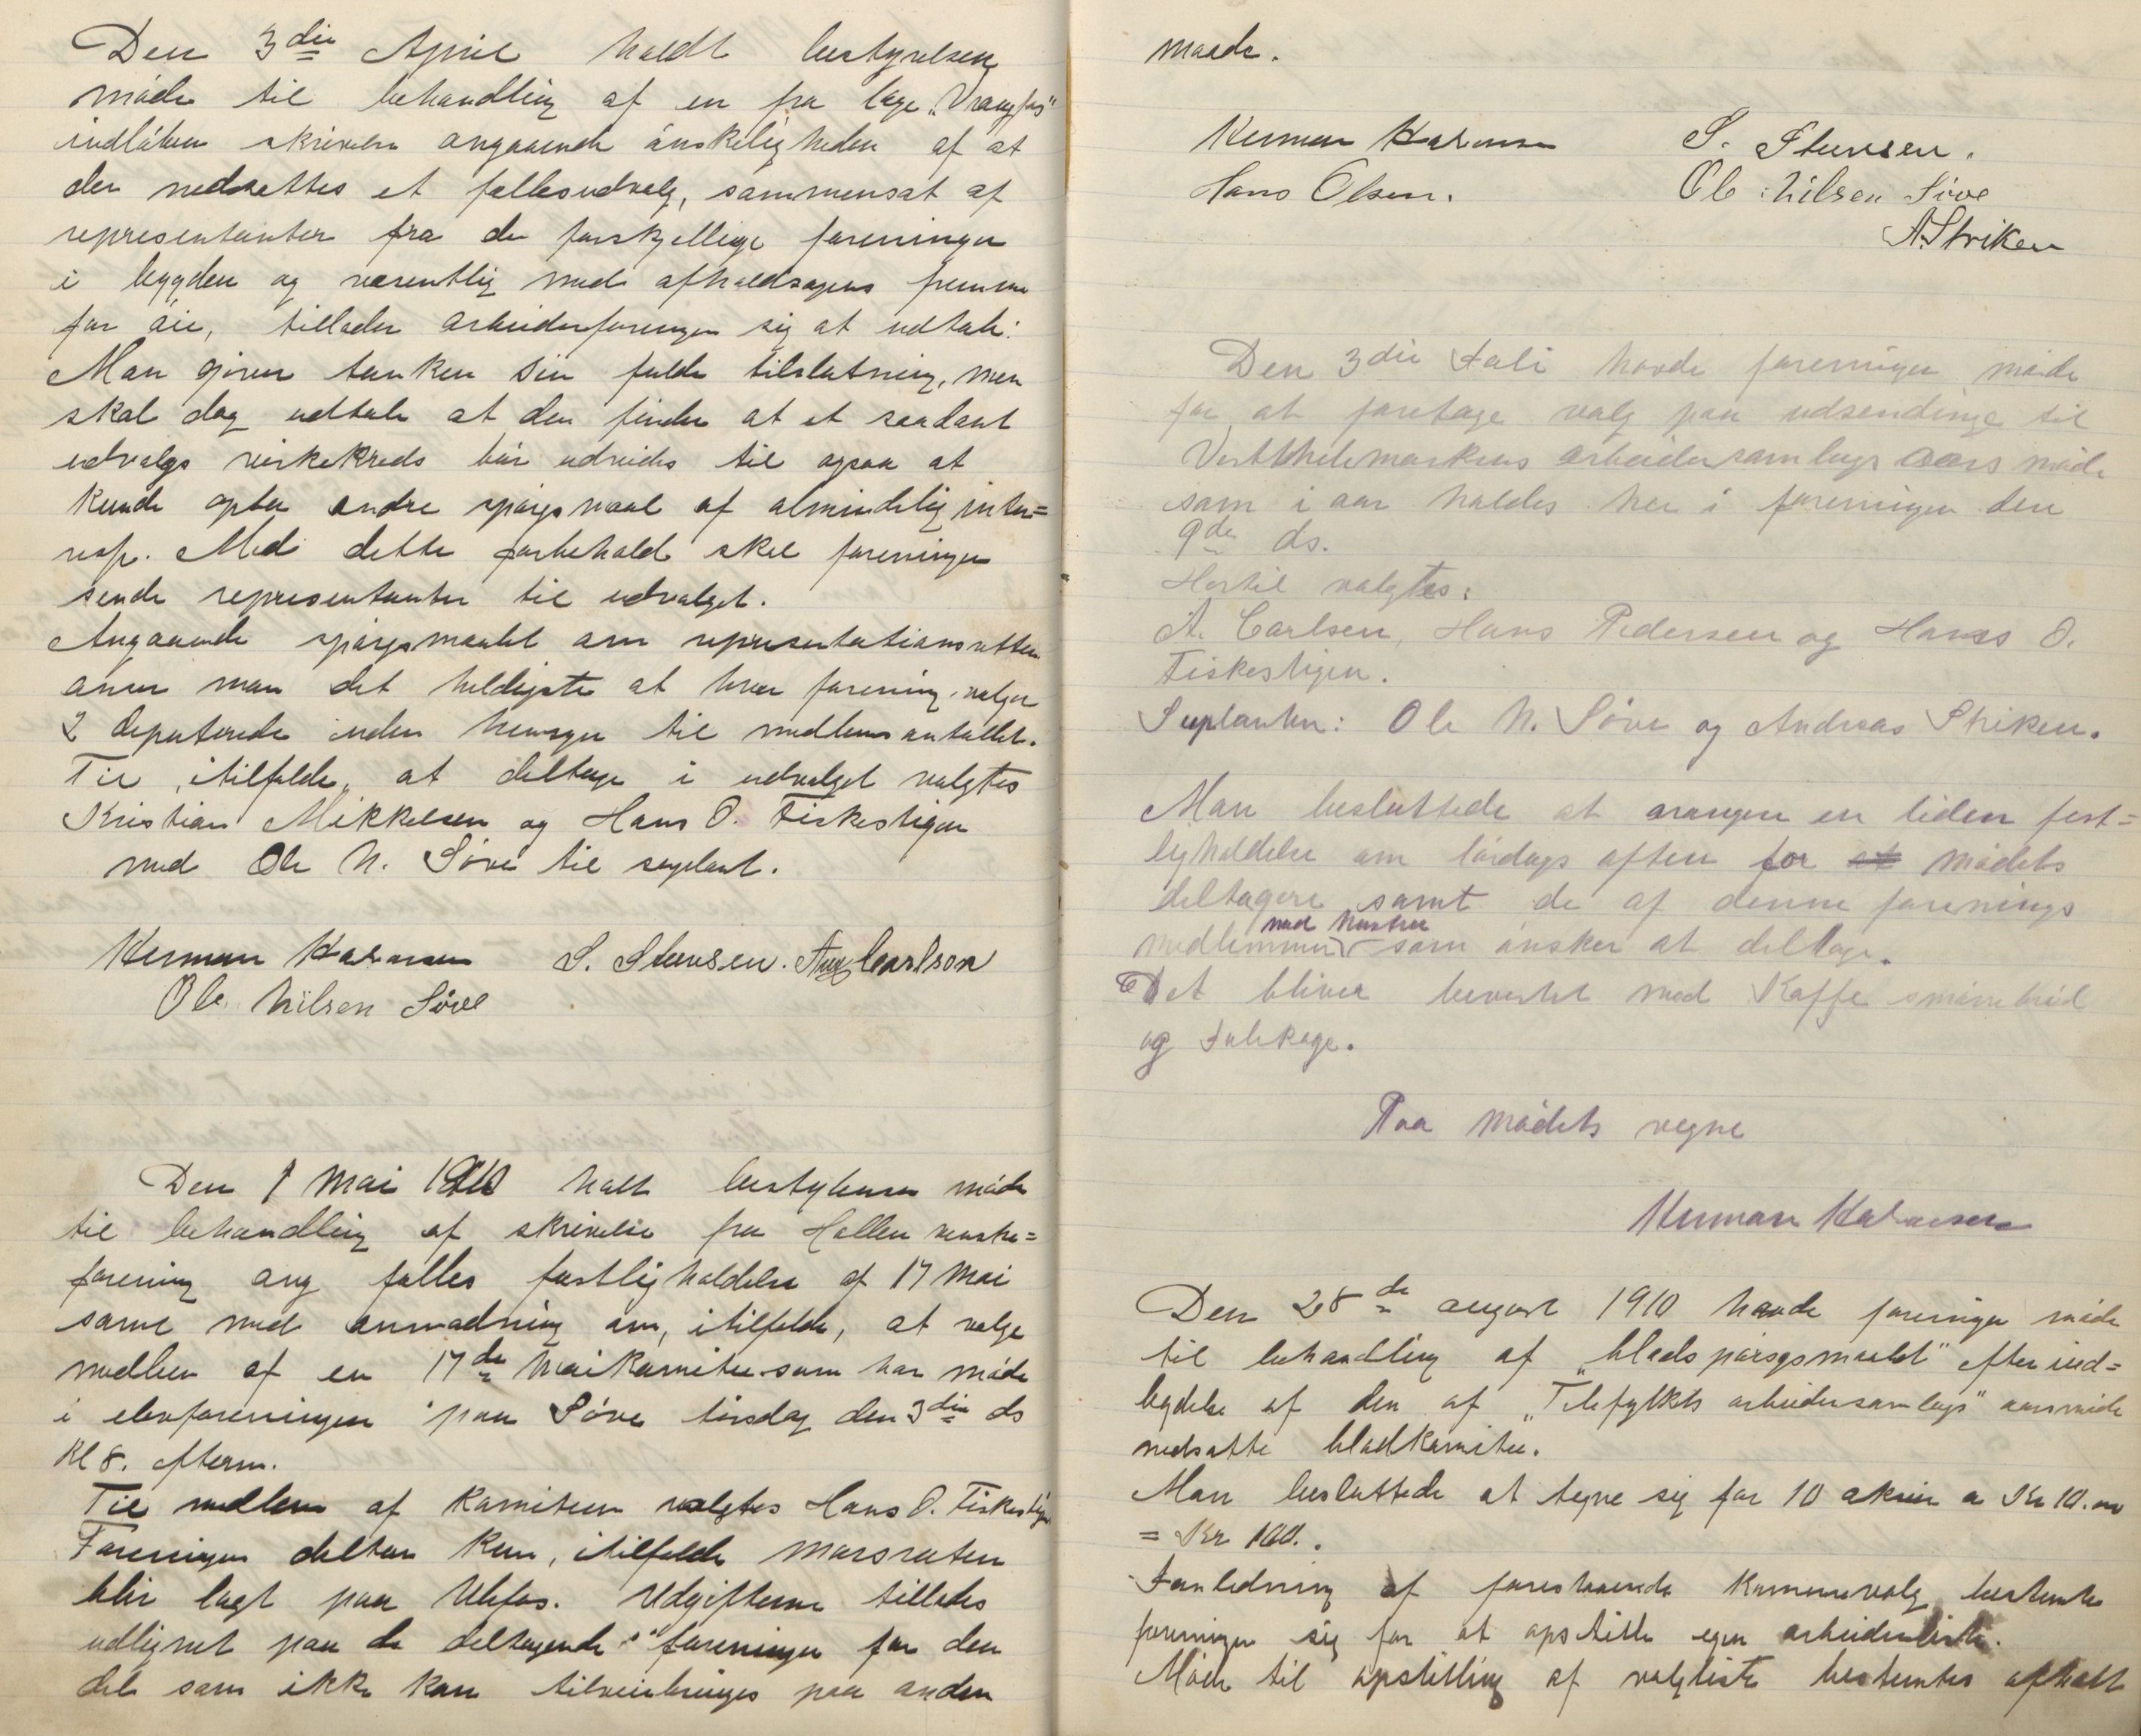 Den 3die April holdt bestyrelsen
møde til behandling af en fra loge „Vrangfos"
indløben skrivelse angaaende ønskeligheden af at
der nedsettes et fællesudvalg, sammensat af
representanter fra de forskjellige foreninger
i bygden og væsentlig med afholdsagens fremme
for øie, tillader arbeiderforeningen sig at udtale:
Man giver tanken sin fulde tilslutning, men
skal dog udtale at den finder at et saadant
udvalgs virkekreds bør udvides til ogsaa at
kunde opta andre spørgsmaal af almindelig inter=
esse. Med dette forbehold skal foreningen
sende representanter til udvalget.
Angaaende spørgsmaalet om representationsretten
anser man det heldigste at hver forening velger
2 deputerede uden hensyn til medlemsantallet.
Til, itilfelde, at deltage i udvalget valgtes
Kristian Mikkelsen og Hans O. Fiskestigen
med Ole N. Søve til suplant.
Herman Halvorsen S. Stensen. Aug Carlson
Ole Nilsen Søve
Den 1 Mai 1910 holt bestyrelsen møde
til behandling af skrivelse fra Hollen venstre=
forening ang felles festligholdelse af 17 Mai
samt med anmodning om, itilfelde, at velge
medlem af en 17de Maikomite som har møde
i elevforeningen paa Søve tirsdag den 3die ds
Kl 8. efterm.
Til medlem af komiteen valgtes Hans O. Fiskestigen
Foreningen deltar kun, itilfelde marsruten
blir lagt paa Ulefos. Udgifterne tillades
udlignet paa de deltagende foreninger for den
del som ikke kan tilveiebringes paa anden
maade.
Herman Halvorsen S. Stensen.
Hans Olsen. Ole Nilsen Søve
A. Striken
Den 3die Juli havde foreningen møde
for at foretage valg paa udsendinge til
Vestthelemarkens arbeidersamlags aars møde
som i aar holdes her i foreningen den
9de ds.
Hertil valgtes:
A. Carlsen, Hans Pedersen og Hans O.
Fiskestigen.
Suplanter: Ole N. Søve og Andreas Striken.
Man besluttede at arangere en liden fest=
ligholdelse om lørdags aften for at mødets
deltagere samt de af denne forenings
med hustru
medlemmer som ønsker at deltage.
Det bliver bevertet med Kaffe smørrebrød
og Julekage.
Paa mødets vegne
Herman Halvorsen
Den 28de august 1910 havde foreningen møde
til behandling af „bladspørsgsmaalet" efter ind=
bydelse af den af „Telefylkets arbeidersamlags" aarsmøde
nedsatte bladkomitee.
Man besluttede at tegne sig for 10 aksier a Kr 10.00
= Kr 100..
Janledning af forestaaende Kommunevalg bestemte
foreningen sig for at opstille egen arbeiderliste.
Møde til opstilling af valgliste bestemtes afholt